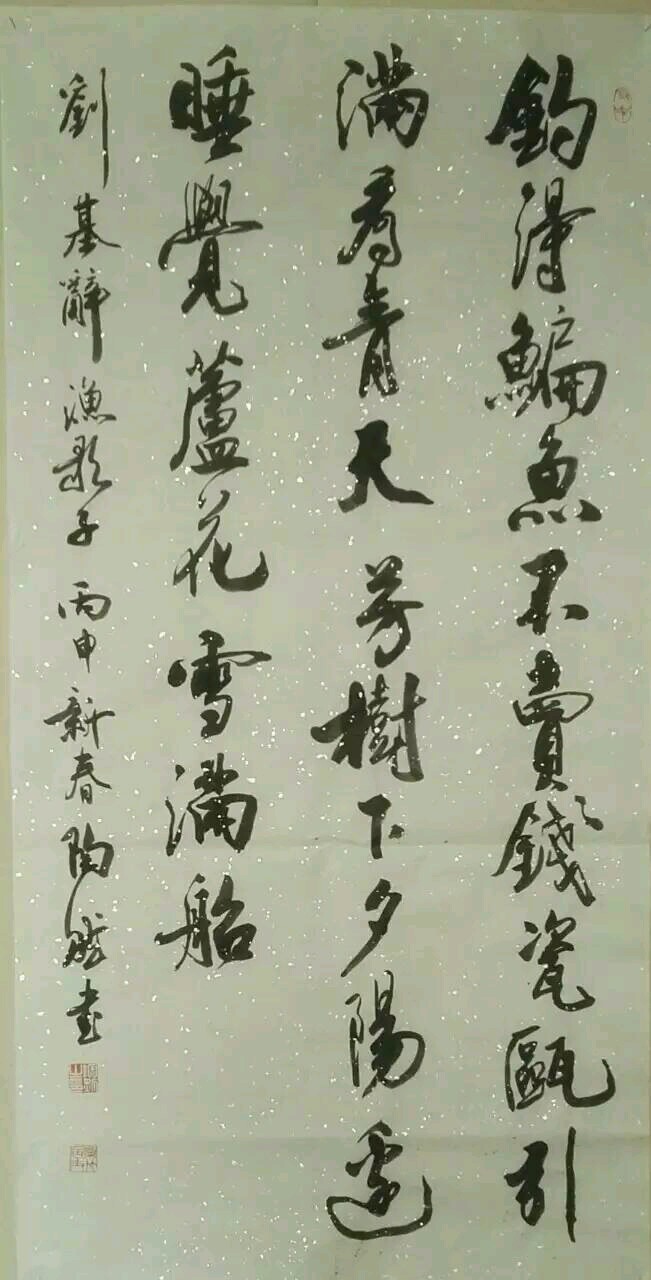 釣得鯿魚不賣錢瓷甌引
滿看青天芳樹下夕陽邊
睡覺蘆花雪滿船
劉基辭漁歌子丙申新春陶然書